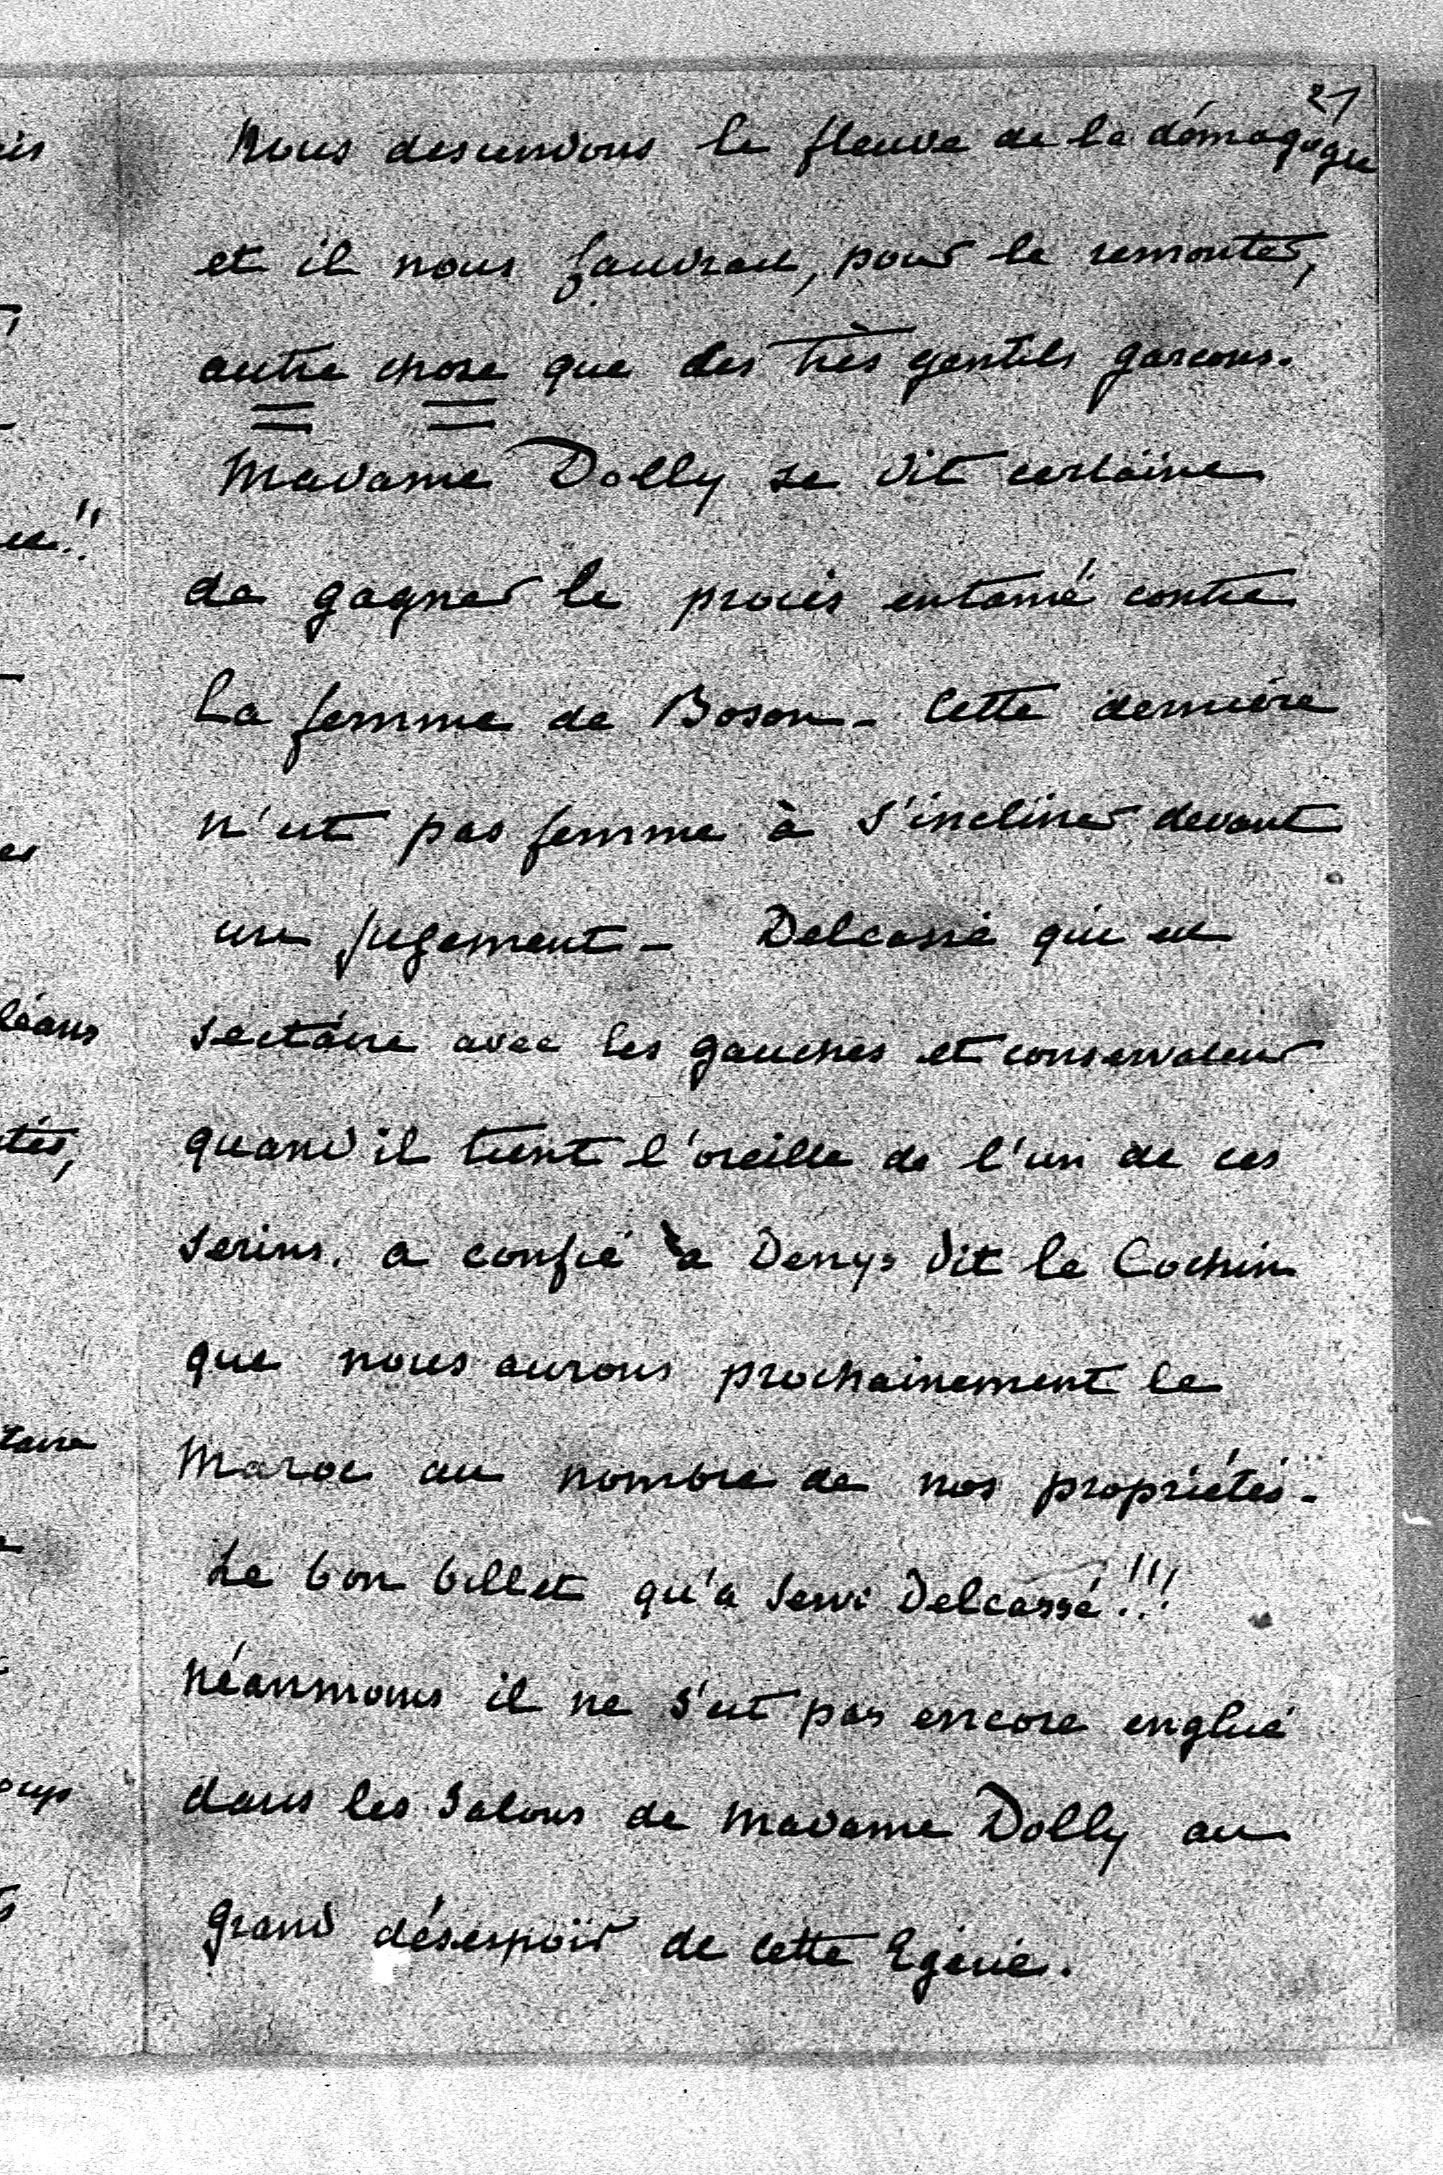 21
Nous descendons le fleuve de la démagogie
et il nous faudrait, pour le remonter,
autre chose que des très gentils garcons.
Madame Dolly se dit certaine
de gagner le procès entamé contre
la femme de Boson - Cette dernière
n'est pas femme à s'incliner devant
un jugement - Delcassé qui est
sectaire avec les gauches et conservateur
quand il tient l'oreille de l'un de ces
serins, a confié à Denys dit le Cochin
que nous aurons prochainement le
Maroc au nombre de nos propriétés -
Le bon billet qu'a servi Delcassé!!!
Néanmoins il ne s'est pas encore englué
dans les salons de Madame Dolly au
grand désespoir de cette Egérie.